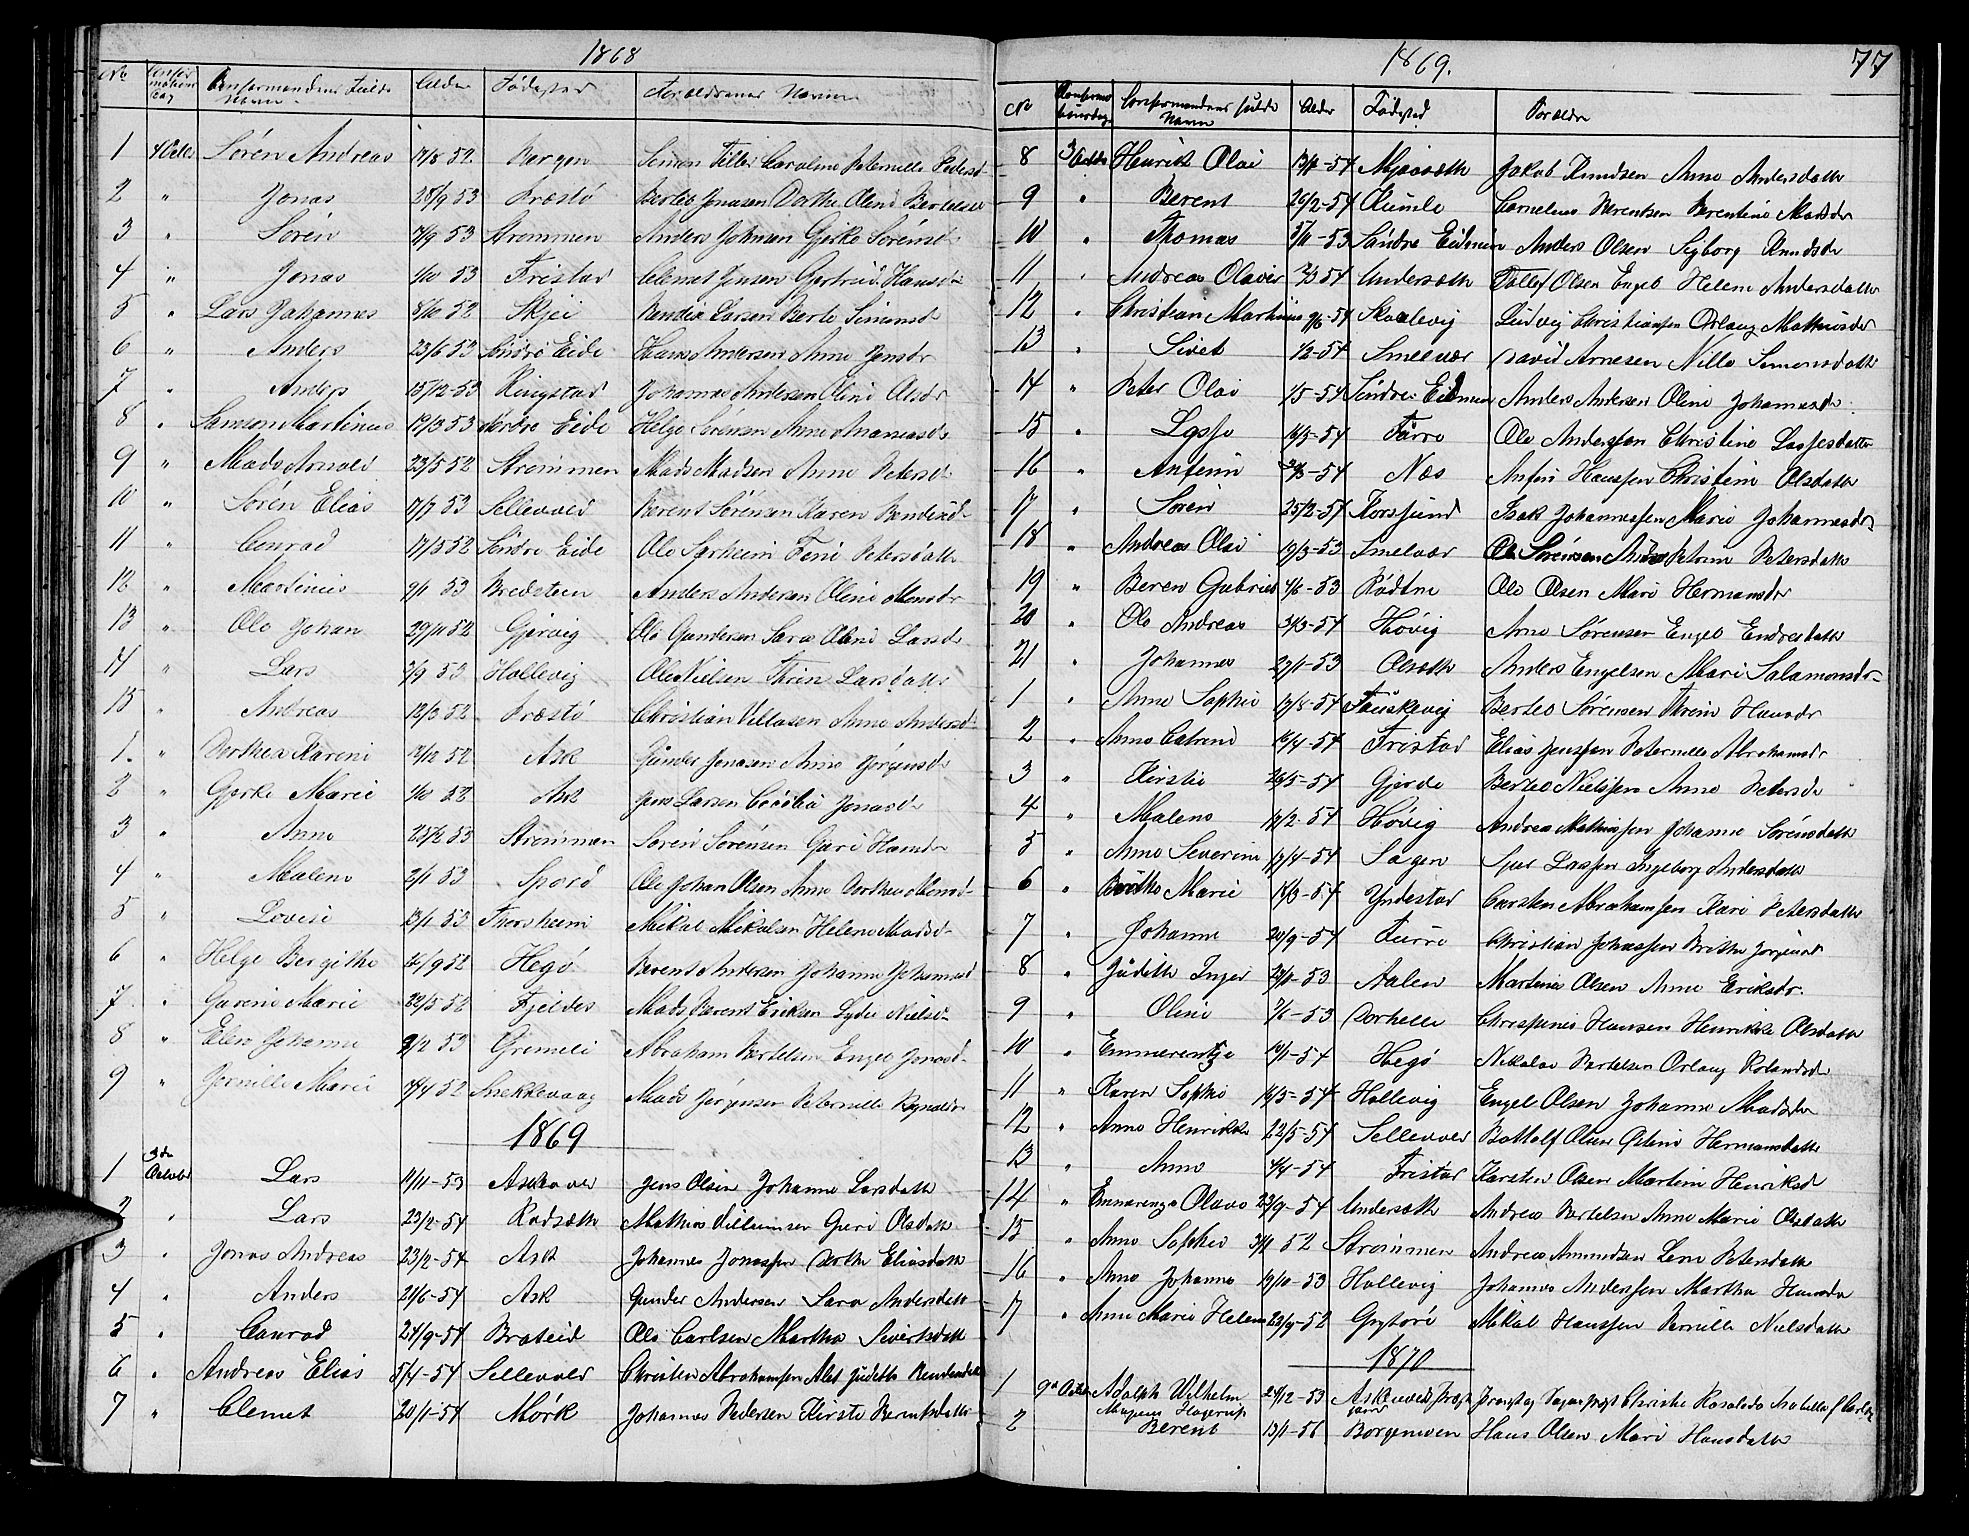 1868
No Confirmationsdag Confirmandens fulde Navn Alder Fødested Forældrenes Navne
1 4 Octbr Søren Andreas 17/8 52 Bergen Simon Caroline Peternille Pedersd
2 " Jonas 28/9 53 Præstø Berteo Jonasen Dorthe Olina Bertelsd
3 " Søren 7/9 53 Strømmen Anders Johnsen Gjerke Sørensd
4 " Jonas 1/10 53 Fristad Clemet Jensen Gjertrud Hansd
5 " Lars Johannes 8/10 52 Skjei Larsen Berte Simonsd
6 " Anders 23/6 53 Søndre Eide Hans Andersen Anne Jensdr
7 " Anders 15/12 53 Ringstad Johannes Andersen Oline Olsdr
8 " Samson Martinus 17/3 53 Nordre Eide Helge Sørensen Anne
9 " Mads Arnold 23/5 52 Strømmen Mads Madsen Anne Petersd
10 " Søren Elias 17/7 53 Sellevold Berent Sørensen Karen
11 " Conrad 17/5 52 Søndre Eide Ole Fenie Petersdatt
12 " Martinus 9/1 53 Bredsteen Anders Andersen Oline Monsdr
13 " Ole Johan 29/11 52 Gjervig Ole Gundersen Sara Oline Larsdr
14 " Lars 3/9 53 Hollevig Ole Nielsen Thrine Larsdatt
15 " Andreas 12/3 52 Præstø Christian Villasen Anne Andersd
1 " Dorthea Kareni 12/12 52 Ask Gunder Jonasen Anne Jørgensd
2 " Gjerke Marie 1/10 52 Ask Jens Larsen Cecilia Jonasd
3 " Anne 25/2 53 Strømmen Søren Sørensen Guri Hansdr
4 " Malene 2/1 53 Spord Ole Johan Olsen Anne Dorthea Monsd
5 " Lovise 13/1 53 Thorsheim Mikal Mikalsen Helene Madsd
6 " Helge Bergithe 16/9 52 Hegø Berent Andersen Johanne Johannesd
7 " Gurine Marie 22/5 52 Fjeldes Mads Berent Eriksen Lydie Nielsd
8 " Elen Johanne 3/2 53 Gremeli Abraham Bertelsen Engel Jonasd
9 " Jernille Marie 14/4 52 Snekkevaag Mads Jørgensen Peternille
1869
1 3die October Lars 11/11-53 Askevold Jens Olsen Johanne Larsdatt
2 " Lars 23/2-54 Rødsæth Mathias Guri Olsdatt
3 " Jonas Andreas 23/2-54 Ask Johannes Jonassen Dorthe Eliasdatt
4 " Anders 21/6-54 Ask Gunder Andersen Sara Andersdatt
5 " Conrad 24/9-54 Brateid Ole Carlsen Martha Sivertsdatt
6 " Andreas Elias 5/4-54 Sellevold Christen Abrahamsen Alet Judetta
7 " Clemet 20/1-54 Mørk Johannes Pedersen Kirsti Berentsdatt
1869. 77
No Confirmationsdag Confirmandens fulde Navn Alder Fødested Forældre
8 3 Octbr Henrik Olai 13/1-54 Mjaasæth Jakob Knudsen Anne Andersdatt
9 " Berent 26/2-54 Cornelius Berentsen Berentine Madsdr
10 " Thomas 5/11-53 Søndre Eidmin Anders Olsen Sigborg Knudsdr
11 " Andreas Olavis 2/3 54 Undersæth Tollef Olsen Engel Helene Andersdatt
12 " Christian Martinus 9/6-54 Skaalevig Ludvig Christiansen Orlaug Mathiasdr
13 " Sivet 1/2-54 Smelvær David Arnesen Nille Simonsdatt
14 " Peter Olai 1/5-54 Søndre Eidmin Anders Andersen Oline Johannesdr
15 " Lasse 16/3-54 Furre Ole Anderssen Christine Lassesdatter
16 " Anfinn -54 Næs Anfin Hanssen Christine Olsdatt
17 " Søren 25/2-54 Korssund Isak Johannessen Marie Johannesdr
18 " Andreas Olai 19/3-53 Smelvær Ole Sørensen Petrine Petersdatt
19 " Beren Gabriel 4/6-53 Rødtne Ole Olsen Mari Hermansdr
20 " Ole Andreas 3/3-54 Høvig Arne Sørensen Engel Endresdatt
21 " Johannes 27/1-53 Olsæth Anders Engelsen Mari Salamonsdr
1 " Anne Sophie 17/8-54 Fauskevig Berteo Sørensen Threin Hansdr
2 " Anne Catrine 16/4-54 Fristad Elias Jenssen Peternille Abrahamsdr
3 " Kirstie 26/5-54 Gjerde Berteo Nielssen Anne Petersdr
4 " Malene 19/2-54 Høvig Andreas Mathiassen Johanne Sørensdatt
5 " Anne Severine 17/4-54 Sagen Lassen Ingeborg Andersdatt
6 " Marie 18/3-54 Yndestad Carsten Abrahamssen Kari Petersdatt
7 " Johanne 20/9-54 Furre Christian Johnssen Brithe Jørgensd
8 " Judith Inger 29/11-53 Aalen Martinus Olsen Anne Eriksdr.
9 " Oline 7/6-53 Dorhelle Chrispinus Hansen Henrikke Olsdatt
10 " Emmerentze 10/1-54 Hegø Nikolai Bertelsen Orlaug Rolandsdr
11 " Karen Sophie 16/5-54 Hollevig Engel Olsen Johanne Madsdr
12 " Anne Henrikke 22/5-54 Sellevold Bottolf Olsen Hermansdatt
13 " Anne 4/4-54 Fristad Karsten Olsen Martine Henriksd
14 " Emmerenze Olava 29/9-54 Undersæth Andreas Bertelsen Anne Marie Olsdatt
15 " Anne Sophie 3/11 52 Strømmen Andreas Amundsen Lene Petersdatt
16 " Anne Johanne 19/10-53 Hollevig Johannes Anderssen Martha Hansdr
17 " Anne Marie Helene 29/9-52 Grytøre Mikal Hanssen Pernille Nielsdatt
1870
1 9de Octbr Adolph Wilhelm Magnus Hagerup 24/12-53 Askevold Christie
2 Berent 13/1-56 Borgemoen Hans Olsen Mari Hansdatt